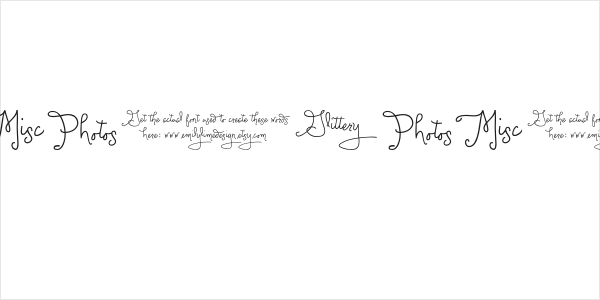 Misc Photos Get the actual font used to create these words Glittery Photos Misc Get the actual fon
here: www.emilylimedesign.etsy.com here: www.em